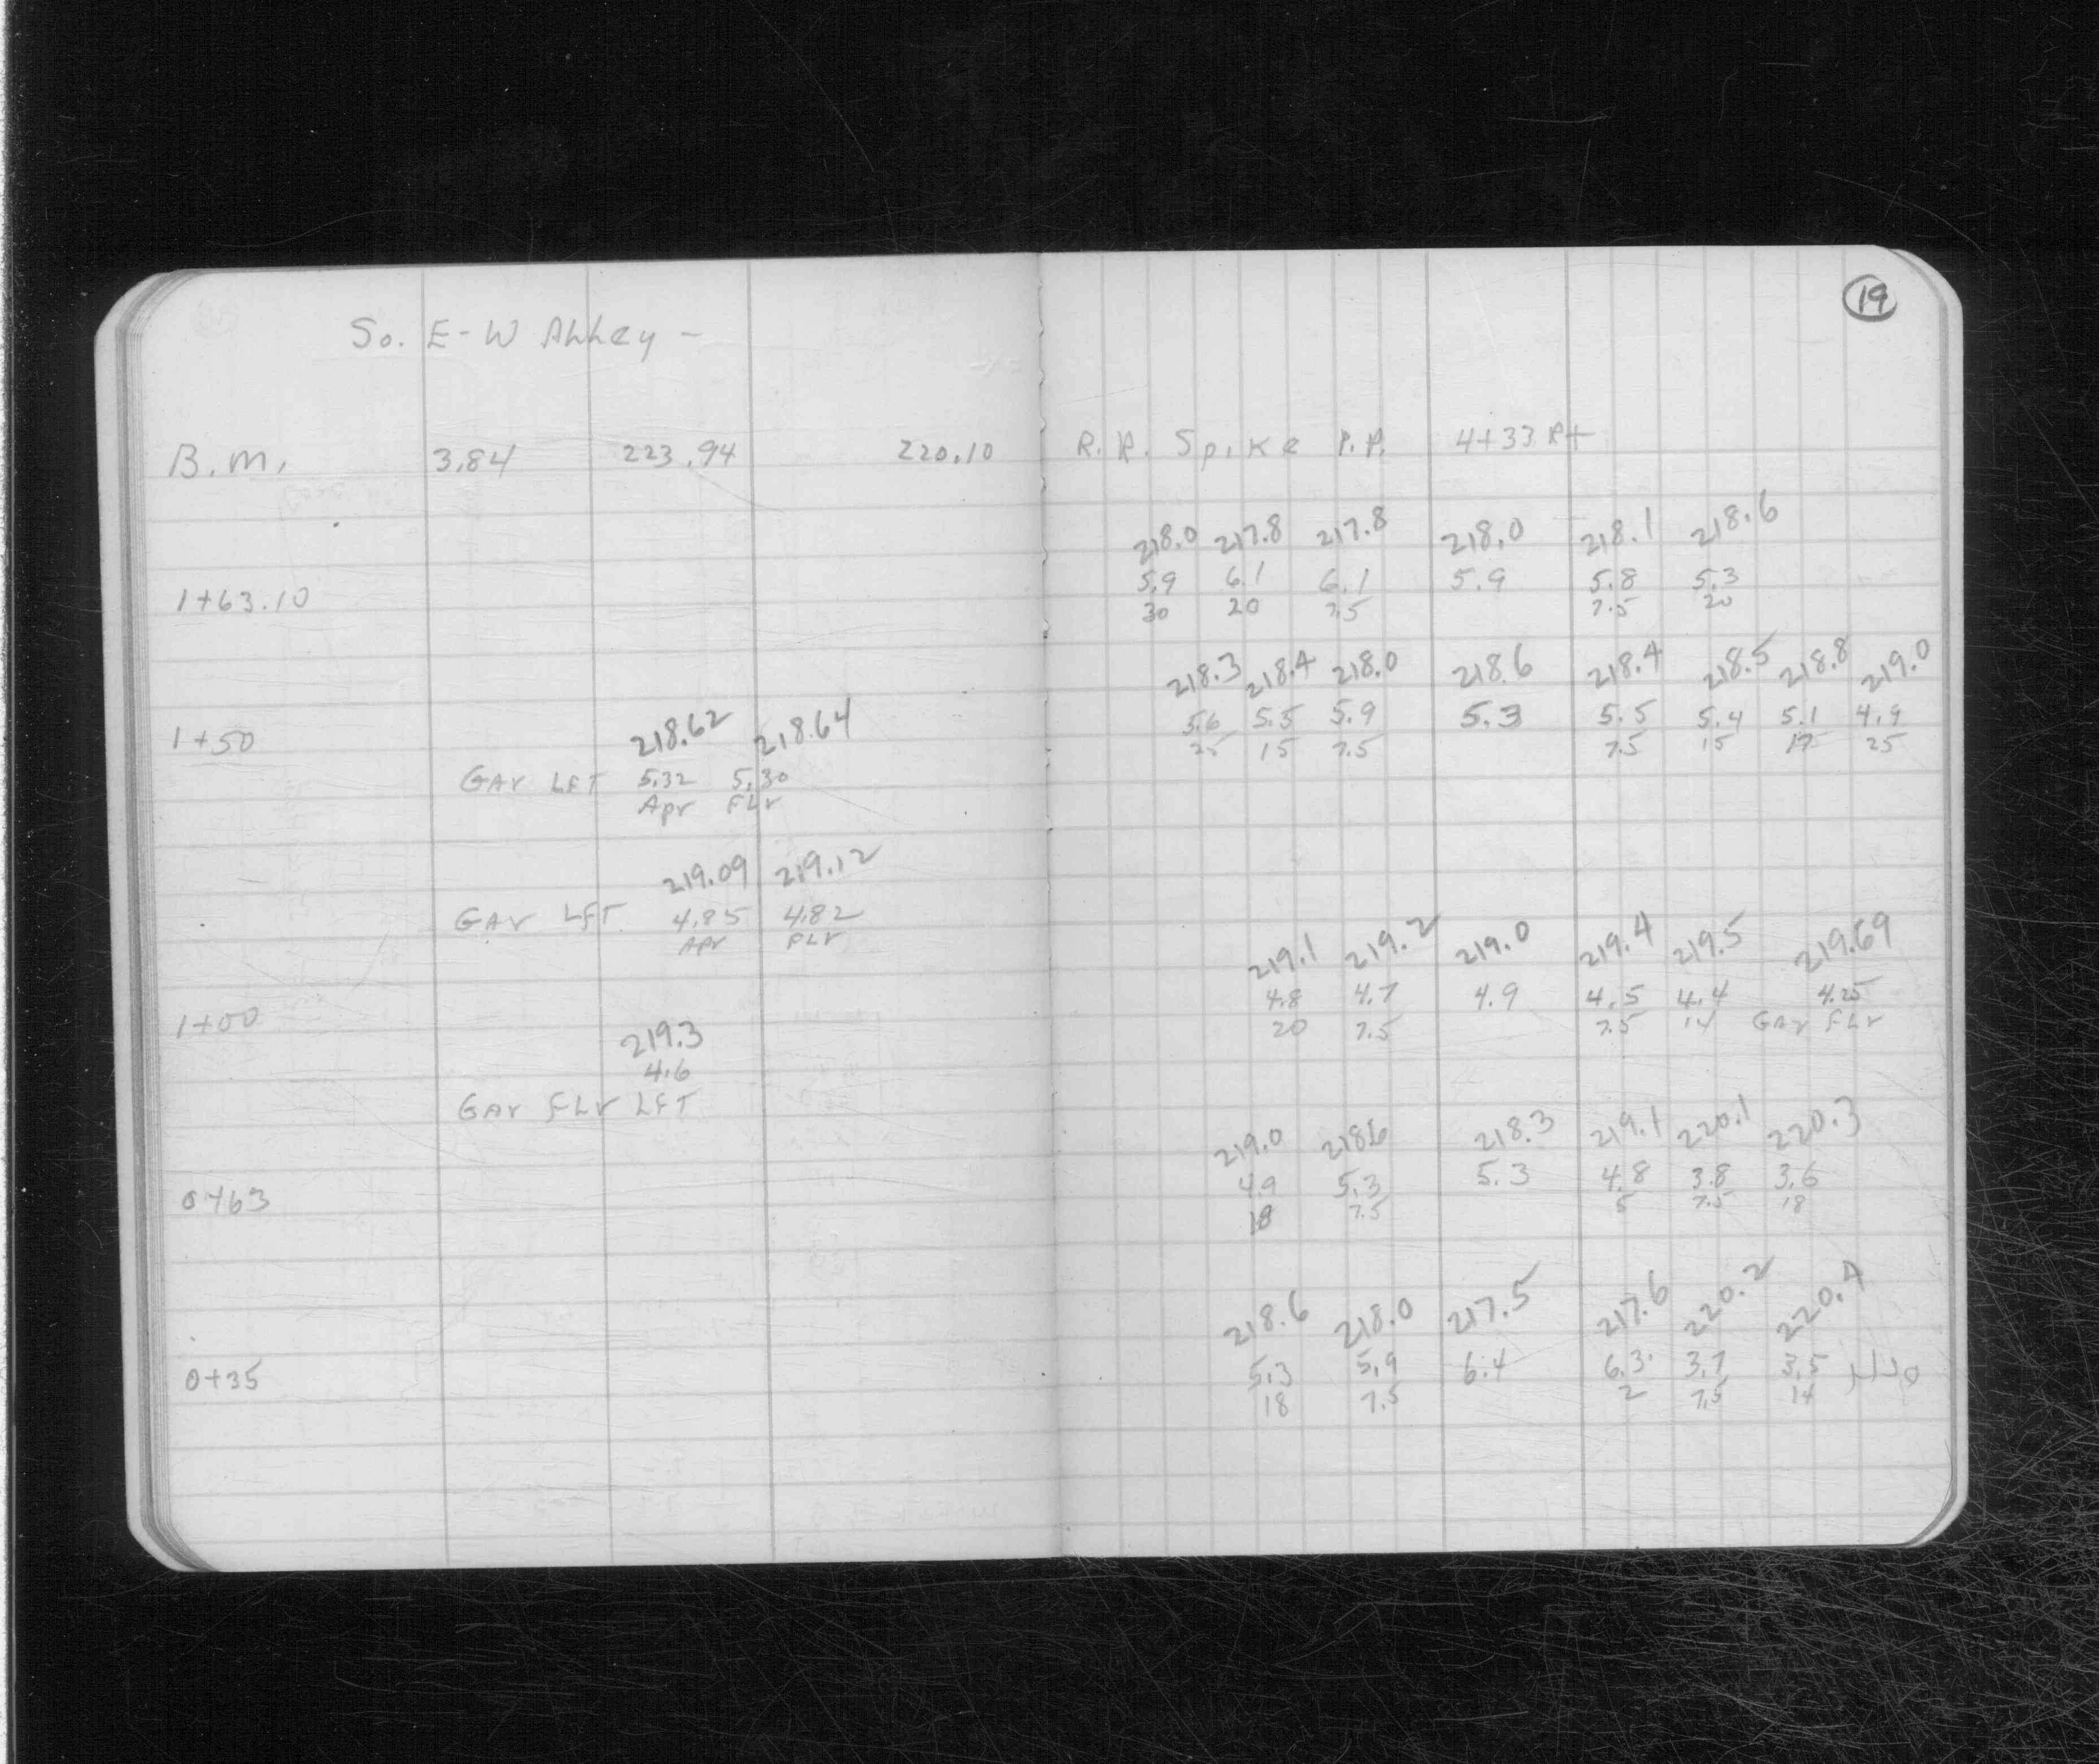 19
So. E-W Alley -
B.M. 3.84 223.94 220.10 R.R. Spike P.P. 4+33 Rt
218.0 217.8 217.8 218.0 218.1 218.6
5.9 6.1 6.1 5.9 5.8 5.3
1+63.10
30 20 7.5 7.5 20
218.3 218.4 218.0 218.6 218.4 218.5 218.8 219.0
218.62 218.64
1+50 5.6 5.5 5.9 5.3 5.5 5.4 5.1 4.9
25 15 7.5 7.5 15 17 25
GAr LFT 5.32 5.30
Apr FLr
219.09 219.12
GAr LFT 4.85 4.82
Apr FLr
219.1 219.2 219.0 219.4 219.5 219.69
4.8 4.7 4.9 4.5 4.4 4.25
1+00 20 7.5 7.5 14 GAr FLr
219.3
4.6
GAr FLr LFT
219.0 218.6 218.3 219.1 220.1 220.3
4.9 5.3 5.3 4.8 3.8 3.6
0+63 18 7.5 5 7.5 18
218.6 218.0 217.5 217.6 220.2 220.4
0+35 5.3 5.9 6.4 6.3 3.7 3.5
18 7.5 2 7.5 14